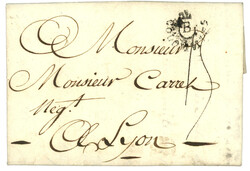 Monsieur
Monsieur Carret
Neg.t
A Lyon